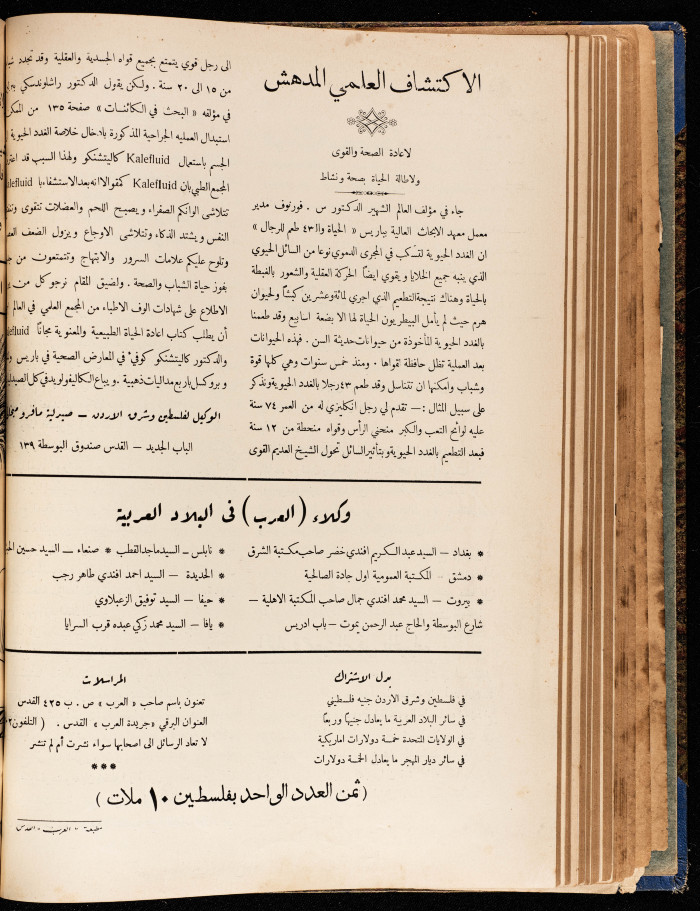 الاكتشاف العلمي المدهش
لاعادة الصحة والقوى
ولاطالة الحياة بصحة ونشاط
جاء في مؤلف العالم الشهير الدكتور س . فورنوف مدير
معمل معهد الابحاث العالية بباريس « الحياة والـ ٤٣ طعم للرجال »
ان الغدد الحيوية تسكب في المجرى الدموي نوعا من السائل الحيوي
الذي ينبه جميع الخلايا ويقوي ايضاً الحركة العقلية والشعور بالغبطة
بالحياة وهناك نتيجة التطعيم الذي اجري لمائة وعشرين كبشاً ولحيوان
هرم حيث لم يأمل البيطريون الحياة لها الا بضعة اسابيع وقد طعمنا
بالغدد الحيوية المأخوذة من حيوانات حديثة السن . فهذه الحيوانات
بعد العملية تظل حافظة لقواها . ومنذ خمس سنوات وهي كلها قوة
وشباب وامكنها ان تتناسل وقد طعم ٤٣ رجلا بالغدد الحيوية ونذكر
على سبيل المثال : — تقدم لي رجل انكليزي له من العمر ٧٤ سنة
عليه لوائح التعب والكبر منحني الرأس وقواه منحطة من ١٢ سنة
فبعد التطعيم بالغدد الحيوية وبتأثير السائل تحول الشيخ العديم القوى
الى رجل قوي يتمتع بجميع قواه الجسدية والعقلية وقد تجدد
من ١٥ الى ٢٠ سنة . ولكن يقول الدكتور راشلوندسكي
في مؤلفه « البحث في الكائنات » صفحة ١٣٥ من
استبدال العمليه الجراحية المذكورة بادخال خلاصة الغدد الحيوية
الجسم باستعمال Kalefluid كاليتشنكو ولهذا السبب قد
المجمع الطبي بان Kalefluid كمقو الا انه بعد الاستشفاء با
تتلاشى الوانكم الصفراء ويصبح اللحم والعضلات تتقوى
النفس ويشتد الذكاء وتتلاشى الاوجاع ويزول الضعف
وتلوح عليكم علامات السرور والابتهاج وتتمتعون من
بفوز حياة الشباب والصحة . ولضيق المقام نرجو كل من
الاطلاع على شهادات الوف الاطباء من المجمع العلمي في العالم
أن يطلب كتاب اعادة الحياة الطبيعية والمعنوية مجاناً
والدكتور كاليتشنكو كوفيء في المعارض الصحية في باريس
وبروكسل باربع مداليات ذهبية . ويباع الكاليفلويد في كل
الوكيل لفلسطين وشرق الاردن — صيدلية مافرو
الباب الجديد — القدس صندوق البوسطة ١٣٩
وكلاء ( العرب ) في البلاد العربية
* بغداد — السيد عبد الكريم افندي خضر صاحب مكتبة الشرق
* دمشق – المكتبة العمومية اول جادة الصالحية
* بيروت — السيد محمد افندي جمال صاحب المكتبة الاهلية —
شارع البوسطة والحاج عبد الرحمن يموت – باب ادريس
* نابلس – السيد ماجد القطب * صنعاء — السيد حسين
* الحديدة — السيد احمد افندي طاهر رجب
* حيفا — السيد توفيق الزعبلاوي
* يافا — السيد محمد زكي عبده قرب السرايا
بدل الاشتراك
في فلسطين وشرق الاردن جنيه فلسطيني
في سائر البلاد العربية ما يعادل جنيهاً وربعاً
في الولايات المتحدة خمسة دولارات اماريكية
في سائر ديار المهجر ما يعادل الخمسة دولارات
المراسلات
تعنون باسم صاحب « العرب » ص . ب ٤٢٥ القدس
العنوان البرقي « جريدة العرب » القدس . ( التلفون
لا تعاد الرسائل الى اصحابها سواء نشرت أم لم تنشر
***
( ثمن العدد الواحد بفلسطين ١٠ ملات )
مطبعة « العرب » القدس